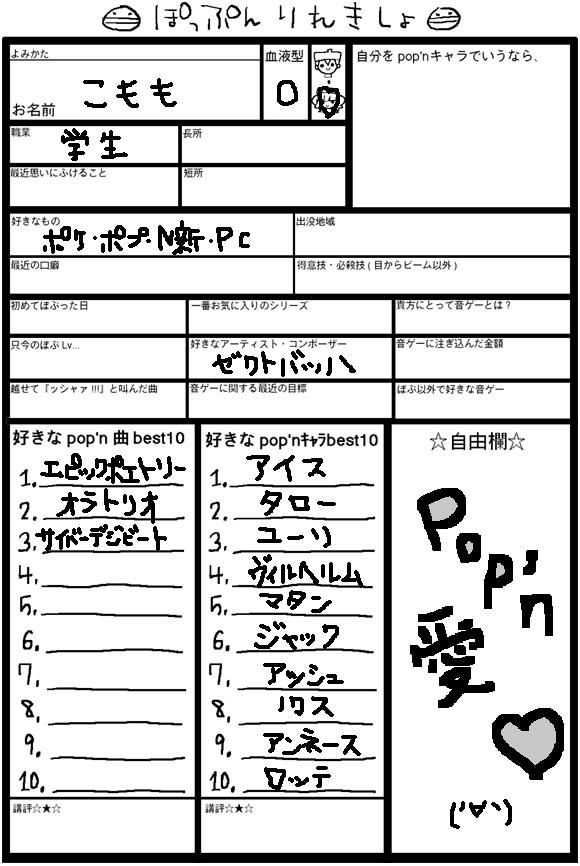 ぽっぷん りれきしょ
よみかた
お名前 こもも
血液型
O
自分を pop'nキャラでいうなら、
職業 学生
長所
最近思いにふけること
短所
好きなもの
ポケ・ポプ・N斬・PC
出没地域
最近の口癖
得意技・必殺技 ( 目からビーム以外 )
初めてぽぷった日
一番お気に入りのシリーズ
貴方にとって音ゲーとは？
只今のぽぷ Lv...
好きなアーティスト・コンポーザー
ゼクトバッハ
音ゲーに注ぎ込んだ金額
越せて『ッシャァ !!!』と叫んだ曲
音ゲーに関する最近の目標
ぽぷ以外で好きな音ゲー
好きな pop'n 曲 best10
1. エピックポエトリー
2. オラトリオ
3. サイバーデジビート
4.
5.
6.
7.
8.
9.
10.
講評☆★☆
好きな pop'nｷｬﾗbest10
1. アイス
2. タロー
3. ユーリ
4. ヴィルヘルム
5. マタン
6. ジャック
7. アッシュ
8. リクス
9. アンネース
10. ロッテ
講評☆★☆
☆自由欄☆
Pop'n
愛
('∀')